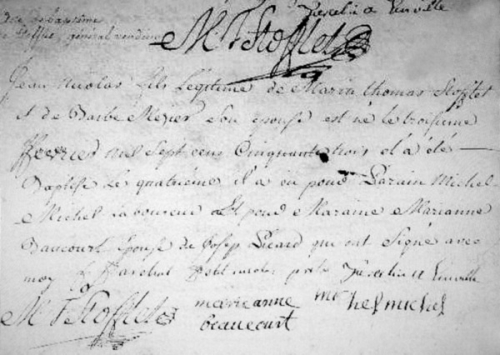 acte de baptême
de Stofflet, général vendéen
M T Stofflet
Jean Nicolas fils Legitime de Marin thomas Stofflet
et de Barbe Meyier Son epouse est né le troisieme
ffevrier mil Sept cens Cinquante trois et a été
Baptisé Le quatrieme il a eu pour Parain Michel
Michel laboureur Et pour Maraine Marianne
Baucourt Epouse de Josep Picard qui ont Signé avec
moy
M T Stofflet
marieanne
beaucourt
michel michel